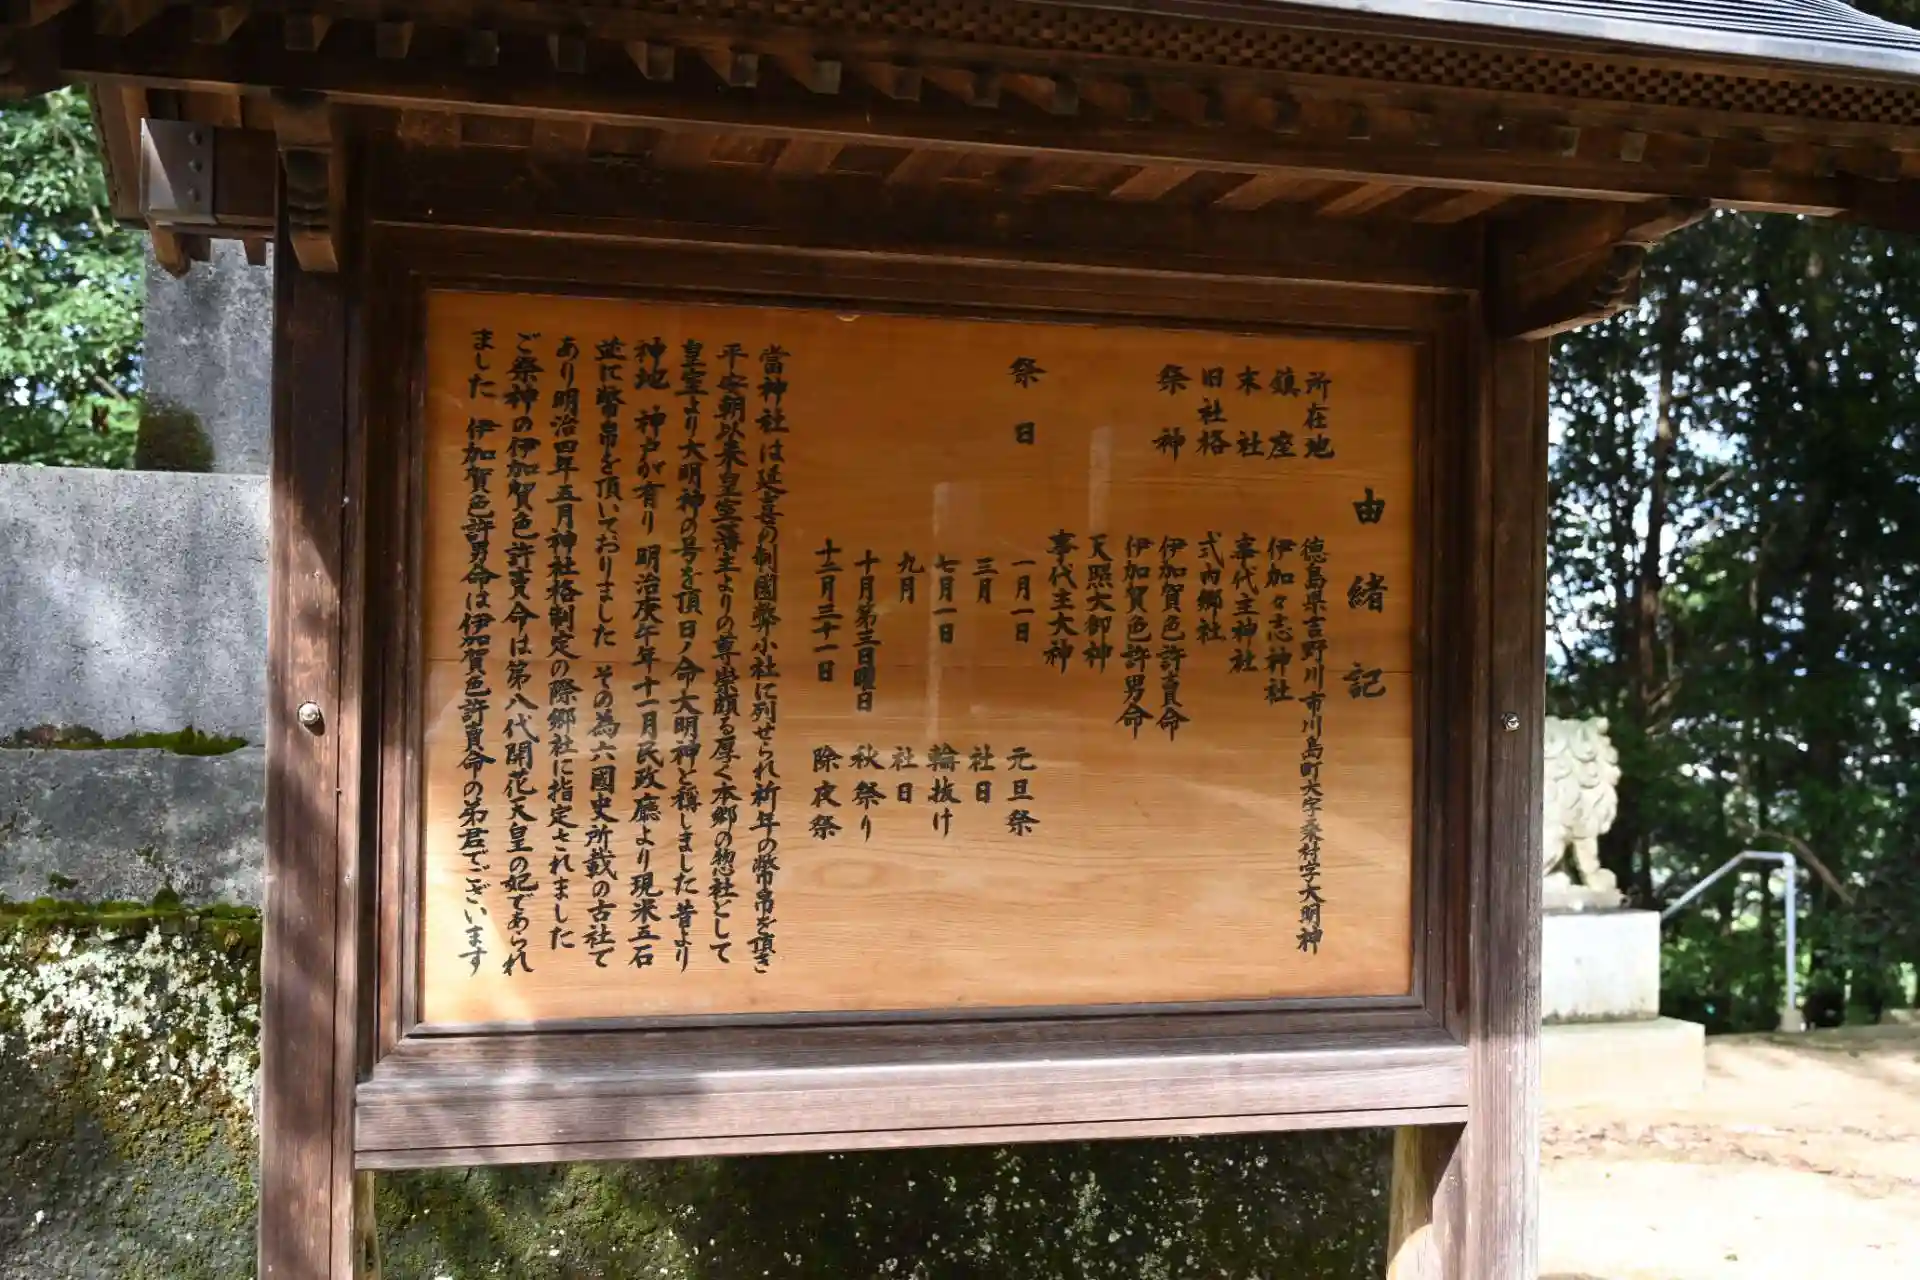 由緒記
所在地 徳島県吉野川市川島町大字桑村字大明神
鎮座 伊加々志神社
末社 事代主神社
旧社格 式内郷社
祭神 伊加賀色許賣命
伊加賀色許男命
天照大御神
事代主大神
祭日 一月一日 元旦祭
三月 社日
七月一日 輪抜け
九月 社日
十月第三日曜日 秋祭り
十二月三十一日 除夜祭
當神社は延喜の制國弊小社に列せられ祈年の幣帛を頂き
平安朝以来皇室藩主よりの尊崇頗る厚く本郷の惣社として
皇室より大明神の号を頂日ノ命大明神と稱しました昔より
神地 神戸が有り 明治庚午年十一月民政廳より現米五石
並に幣帛を頂いておりました その為六國史所載の古社で
あり明治四年五月神社格制定の際郷社に指定されました
ご祭神の伊加賀色許賣命は第八代開花天皇の妃であられ
ました 伊加賀色許男命は伊加賀色許賣命の弟君でございます